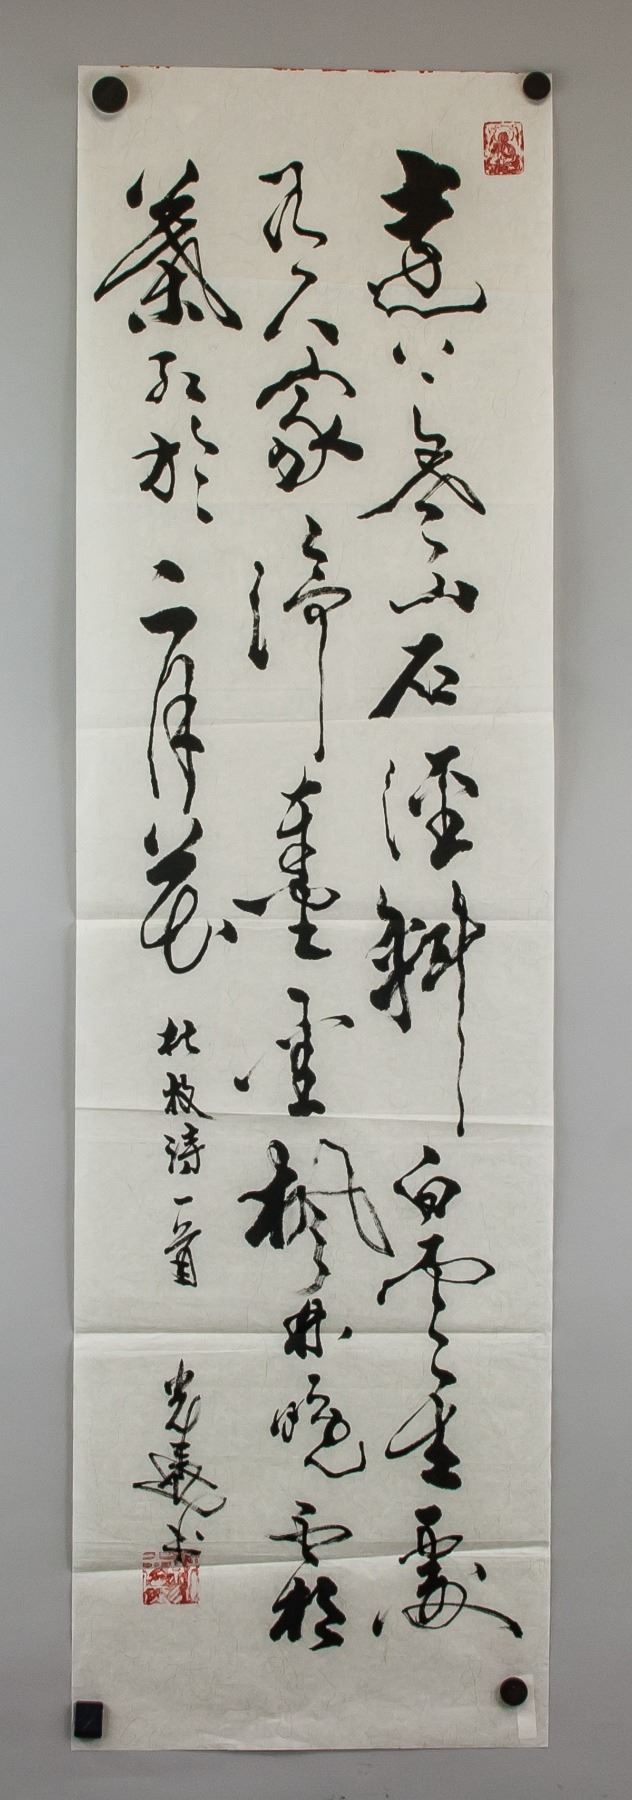 遠上寒山石徑斜白雲生處
有人家停車坐愛楓林晚霜
葉紅於二月花
杜牧詩一首
光義书